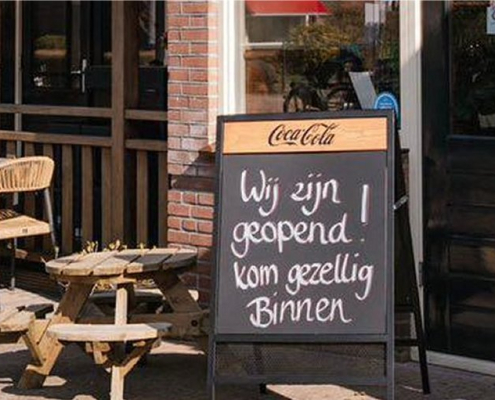 Coca-Cola
Wij zijn
geopend!
kom gezellig
Binnen